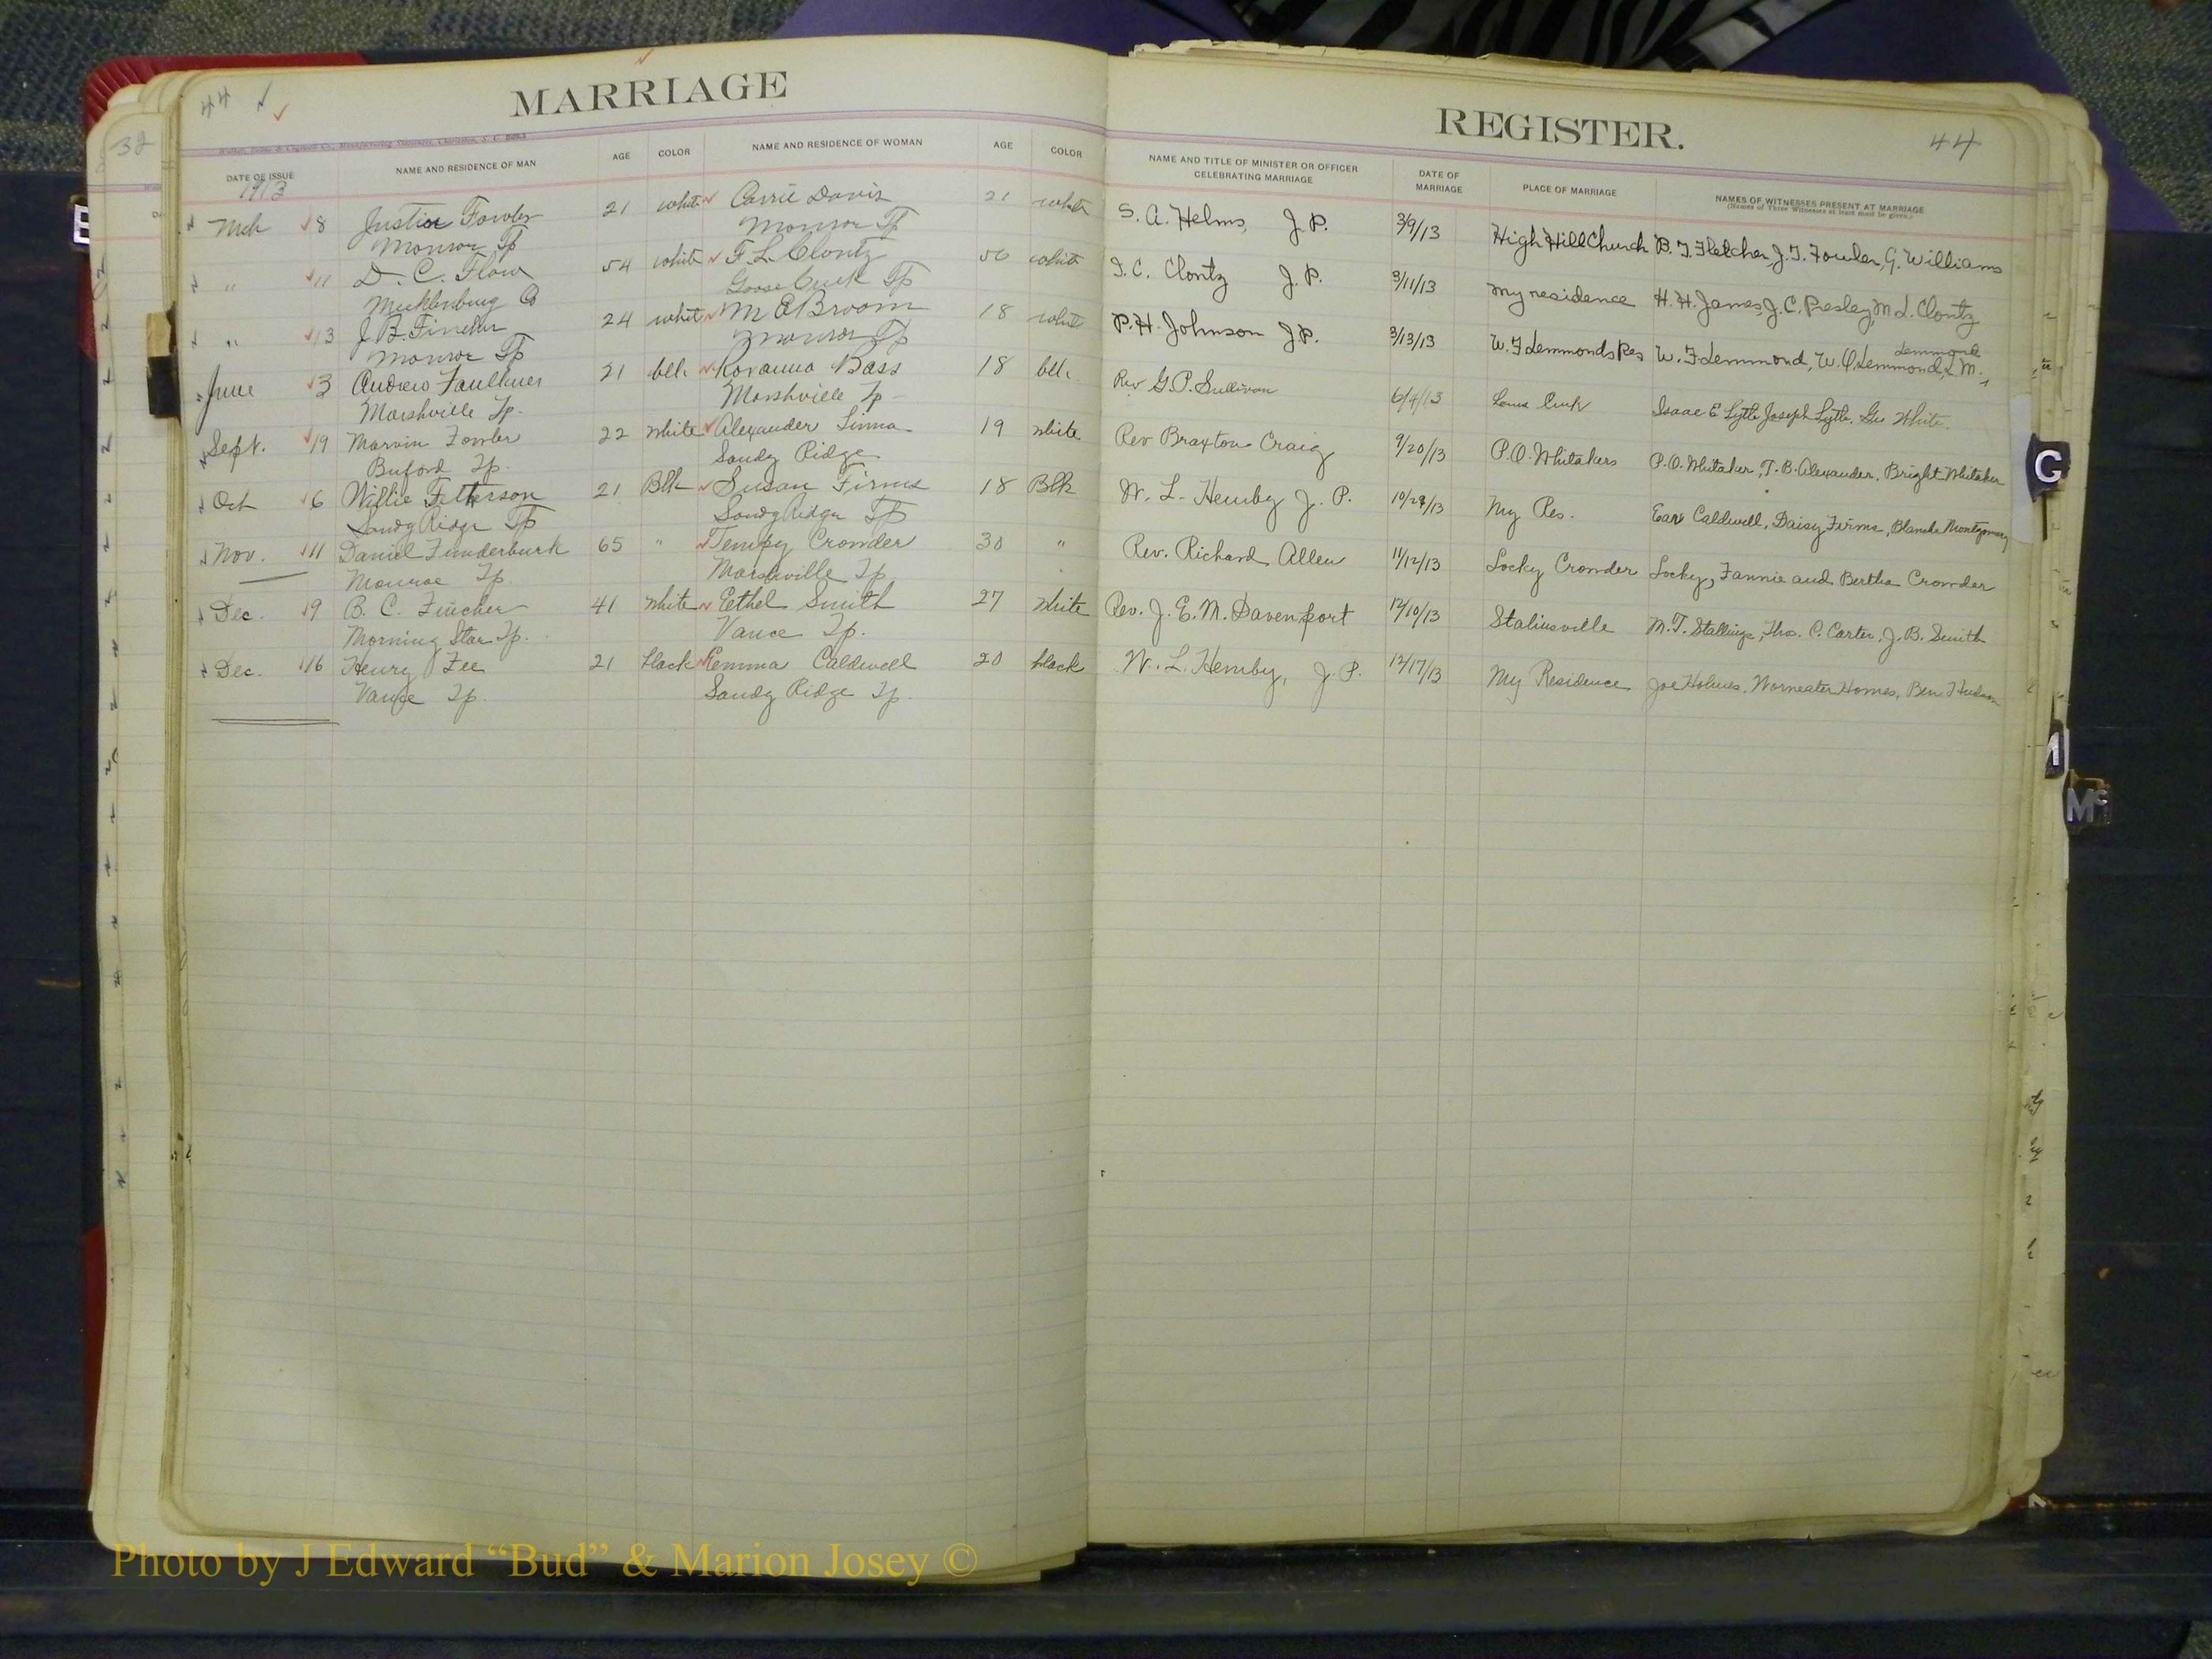 MARRIAGE
44
32
DATE OF ISSUE NAME AND RESIDENCE OF MAN AGE COLOR NAME AND RESIDENCE OF WOMAN AGE COLOR
1913
Mch 8 Justin Fowler 21 white Carrie Davis 21 white
Monroe Tp Monroe Tp
" 11 D. C. Flow 54 white F. L. Clontz 50 white
Mecklenburg Co Goose Creek Tp
" 13 J. B. Fincher 24 white M E Broom 18 white
Monroe Tp Monroe Tp
June 3 Andrew Faulkner 21 blk Rosanna Bass 18 blk
Marshville Tp. Marshville Tp
Sept. 19 Marvin Fowler 22 white Alexander 19 white
Buford Tp. Sandy Ridge
Oct 6 Willie Fetterson 21 Blk Susan Firms 18 Blk
Sandy Ridge Tp Sandy Ridge Tp
Nov. 11 Daniel Funderburk 65 " Tempy Crowder 30 "
Monroe Tp. Marshville Tp
Dec. 9 B. C. Fincher 41 white Eethel Smith 27 white
Morning Star Tp. Vance Tp.
Dec. 16 Henry Fee 21 black Eemma Caldwell 20 black
Vance Tp. Sandy Ridge Tp.
REGISTER.
44
NAME AND TITLE OF MINISTER OR OFFICER CELEBRATING MARRIAGE DATE OF MARRIAGE PLACE OF MARRIAGE NAMES OF WITNESSES PRESENT AT MARRIAGE
(Names of Three Witnesses at least must be given.)
S. A. Helms, J. P. 3/9/13 High Hill Church B. T. Fletcher, J. T. Fowler, G. Williams
I. C. Clontz J. P. 3/11/13 My residence H. H. James, J. C. Presley, M L. Clontz
P. H. Johnson J.P. 3/13/13 W. F Lemmonds Res W. F Lemmond, W. O. Lemmond, L M. Lemmond
Rev G. P. Sullivan 6/4/13 Isaac E Lytle, Joseph Lytle, Geo White.
Rev Braxton Craig 9/20/13 P.O. Whitakers P.O. Whitaker, T. B. Alexander, Bright Whitaker
W. L. Hemby J. P. 10/29/13 My Res. Caldwell, Daisy Firms, Blanche Montgomery
Rev. Richard Allen 11/12/13 Locky Crowder Locky, Fannie and Bertha Crowder
Rev. J. E. M. Davenport 12/10/13 Stalinsville M. T. Stallings, Thos. C. Carter, J. B. Smith
W. L. Hemby, J. P. 12/17/13 My Residence Joe Holmes, Homes, Ben Hudson
G
M
Mc
Photo by J Edward “Bud” & Marion Josey ©